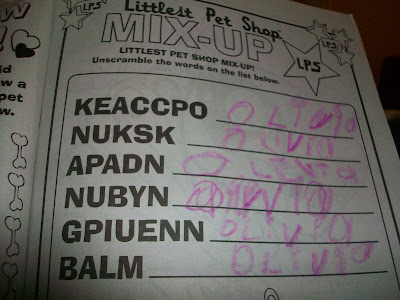 LPS
Littlest Pet Shop
MIX-UP
LITTLEST PET SHOP MIX-UP!
Unscramble the words on the list below.
LPS
KEACCPO OLIVIA
NUKSK OLIVIA
APADN OLIVIA
NUBYN OLIVIA
GPIUENN OLIVIA
BALM OLIVIA